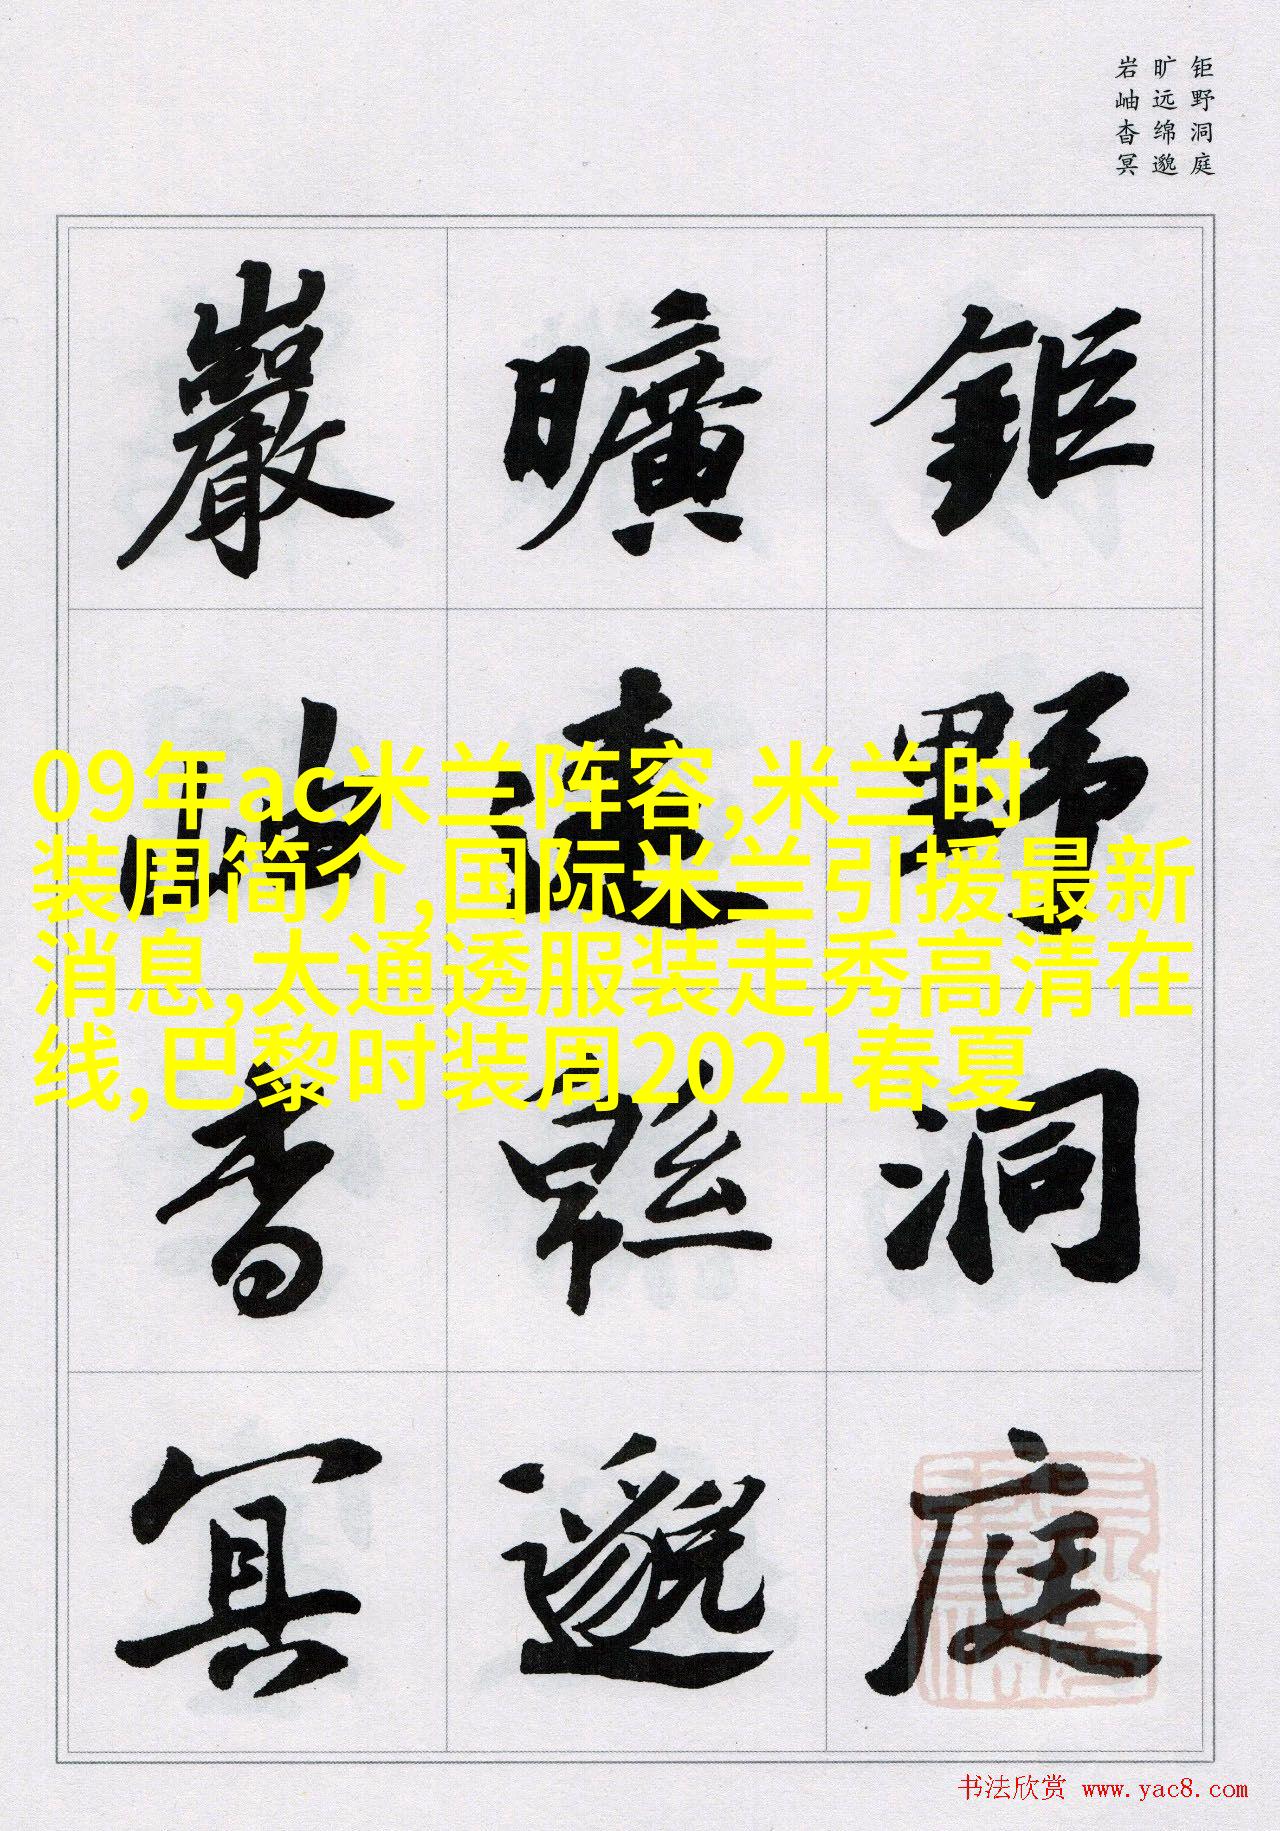 钜野洞庭
旷远绵邈
岩岫杳冥
鉅野洞庭
曠遠緜邈
巖岫杳冥
09年ac米兰阵容,米兰时
装周简介,国际米兰引援最新
消息,太通透服装走秀高清在
线,巴黎时装周2021春夏
书法欣赏 www.yac8.com